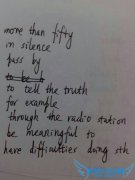 more than fifty
in silence
pass by
to tell the truth
for example
through the radio station
be meaningful to
have difficulties doing sth